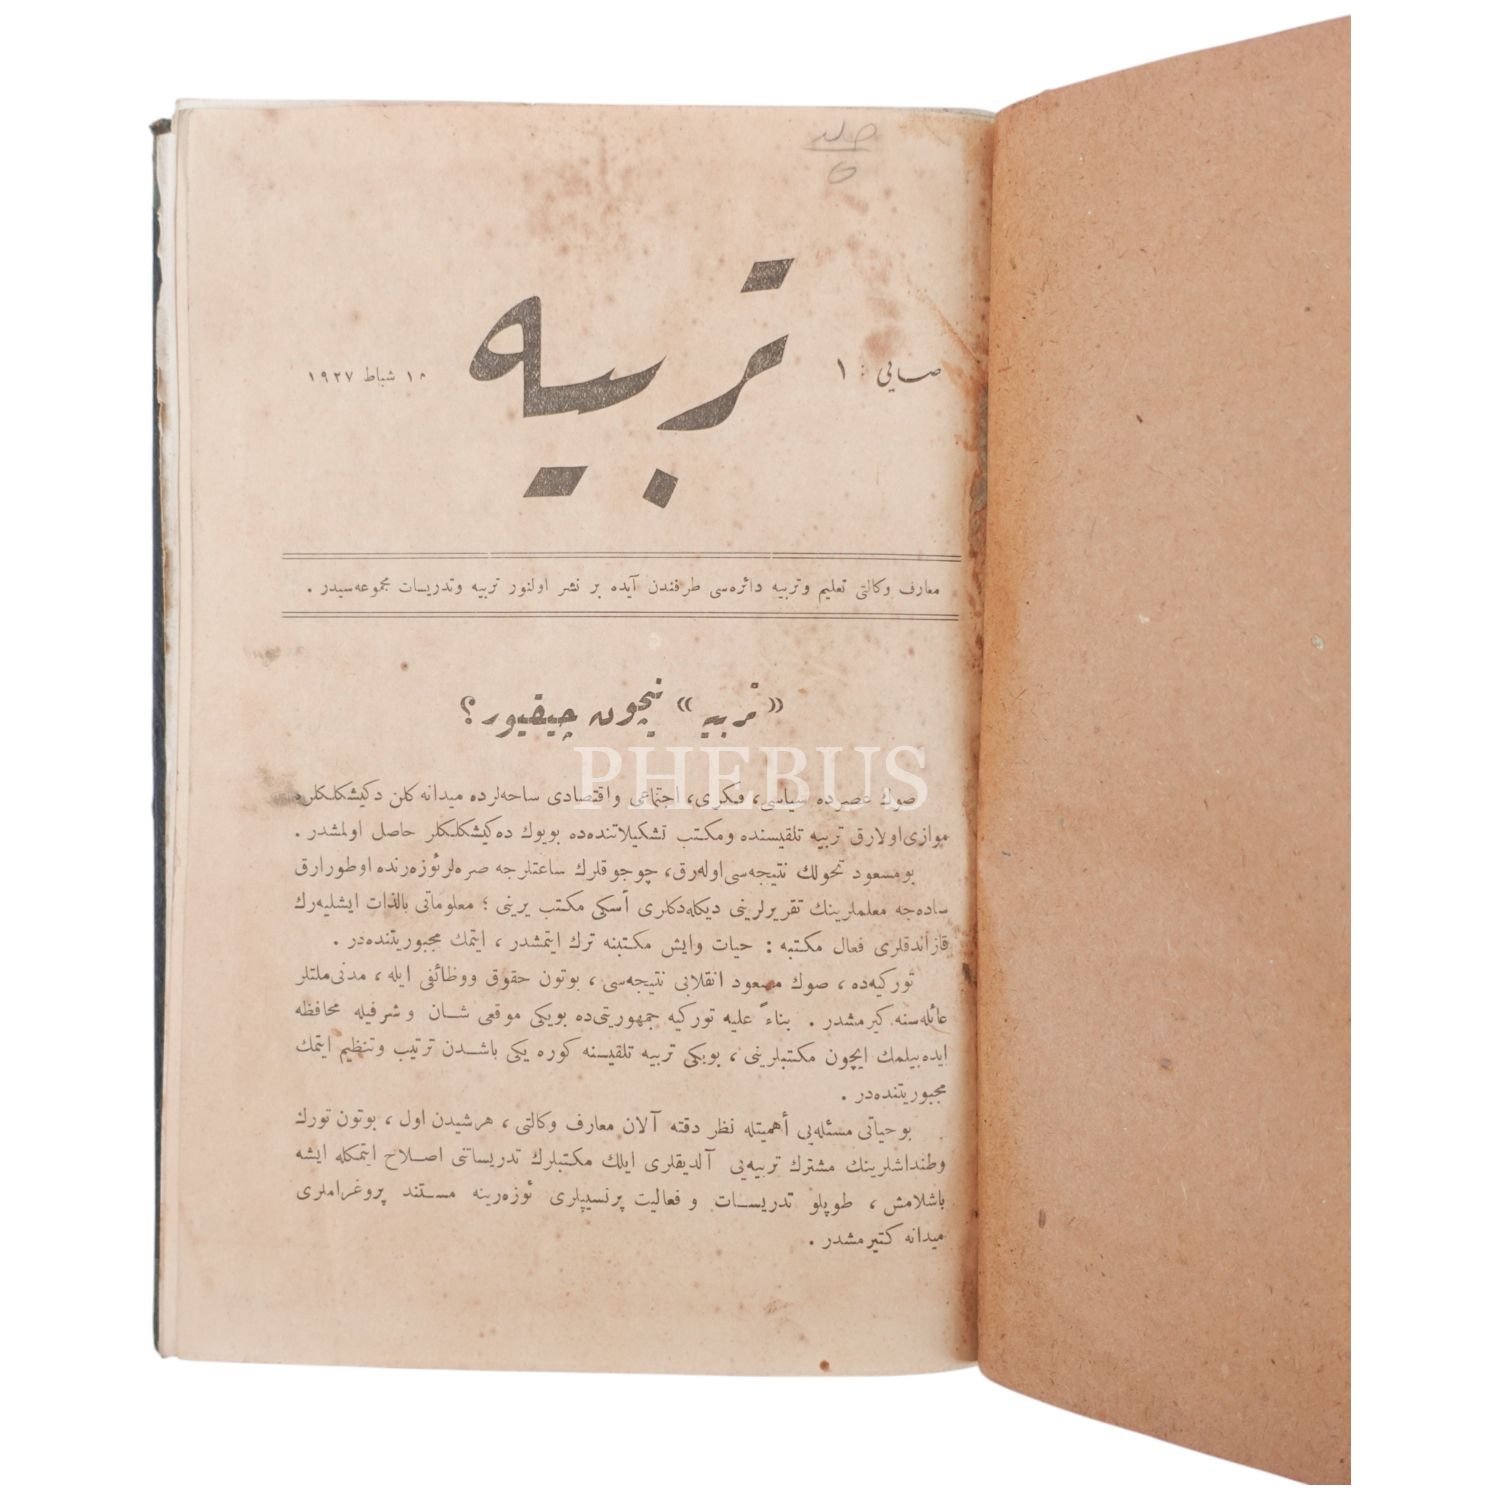 صایی : ١
تربیه
شباط ١٩٢٧
معارف وكالتی تعلیم وتربیه دائره‌سی طرفندن آیده بر نشر اولنور تربیه وتدریسات مجموعه‌سیدر .
«تربیه» نیچون چیقیور ؟
PHEBUS
صوك عصرده سیاسی، فكری، اجتماعی واقتصادی ساحه‌لرده میدانه كلن دكیشكلكلره
موازی اولارق تربیه تلقیسنده ومكتب تشكیلاتنده‌ده بویوك ده‌كیشكلكلر حاصل اولمشدر .
بو مسعود تحولك نتیجه‌سی اوله‌رق، چوجوقلرك ساعتلرجه صره‌لر ئوزه‌رنده اوطورارق
ساده‌جه معلملرینك تقریرلرینی دیكله‌دكلری أسكی مكتب یرینی ؛ معلوماتی بالذات ایشلیه‌رك
قازاندقلری فعال مكتبه : حیات وایش مكتبنه ترك ایتمشدر ، ایتمك مجبوریتنده‌در .
توركیه‌ده ، صوك مسعود انقلابی نتیجه‌سی ، بوتون حقوق ووظائفی ایله ، مدنی ملتلر
عائله‌سنه كیرمشدر . بناءً علیه توركیه جمهوریتی‌ده بویكی موقعی شان وشرفیله محافظه
ایده‌بیلمك ایچون مكتبلرینی ، بویكی تربیه تلقیسنه كوره یكی باشدن ترتیب وتنظیم ایتمك
مجبوریتنده‌در .
بو حیاتی مسئله‌یی أهمیتله نظر دقته آلان معارف وكالتی ، هرشیدن اول ، بوتون تورك
وطنداشلرینك مشترك تربیه‌یی آلدیقلری ایلك مكتبلرك تدریساتنی اصلاح ایتمكله ایشه
باشلامش ، طوپلو تدریسات و فعالیت پرنسیپلری ئوزه‌رینه مستند پروغراملری
میدانه كتیرمشدر .